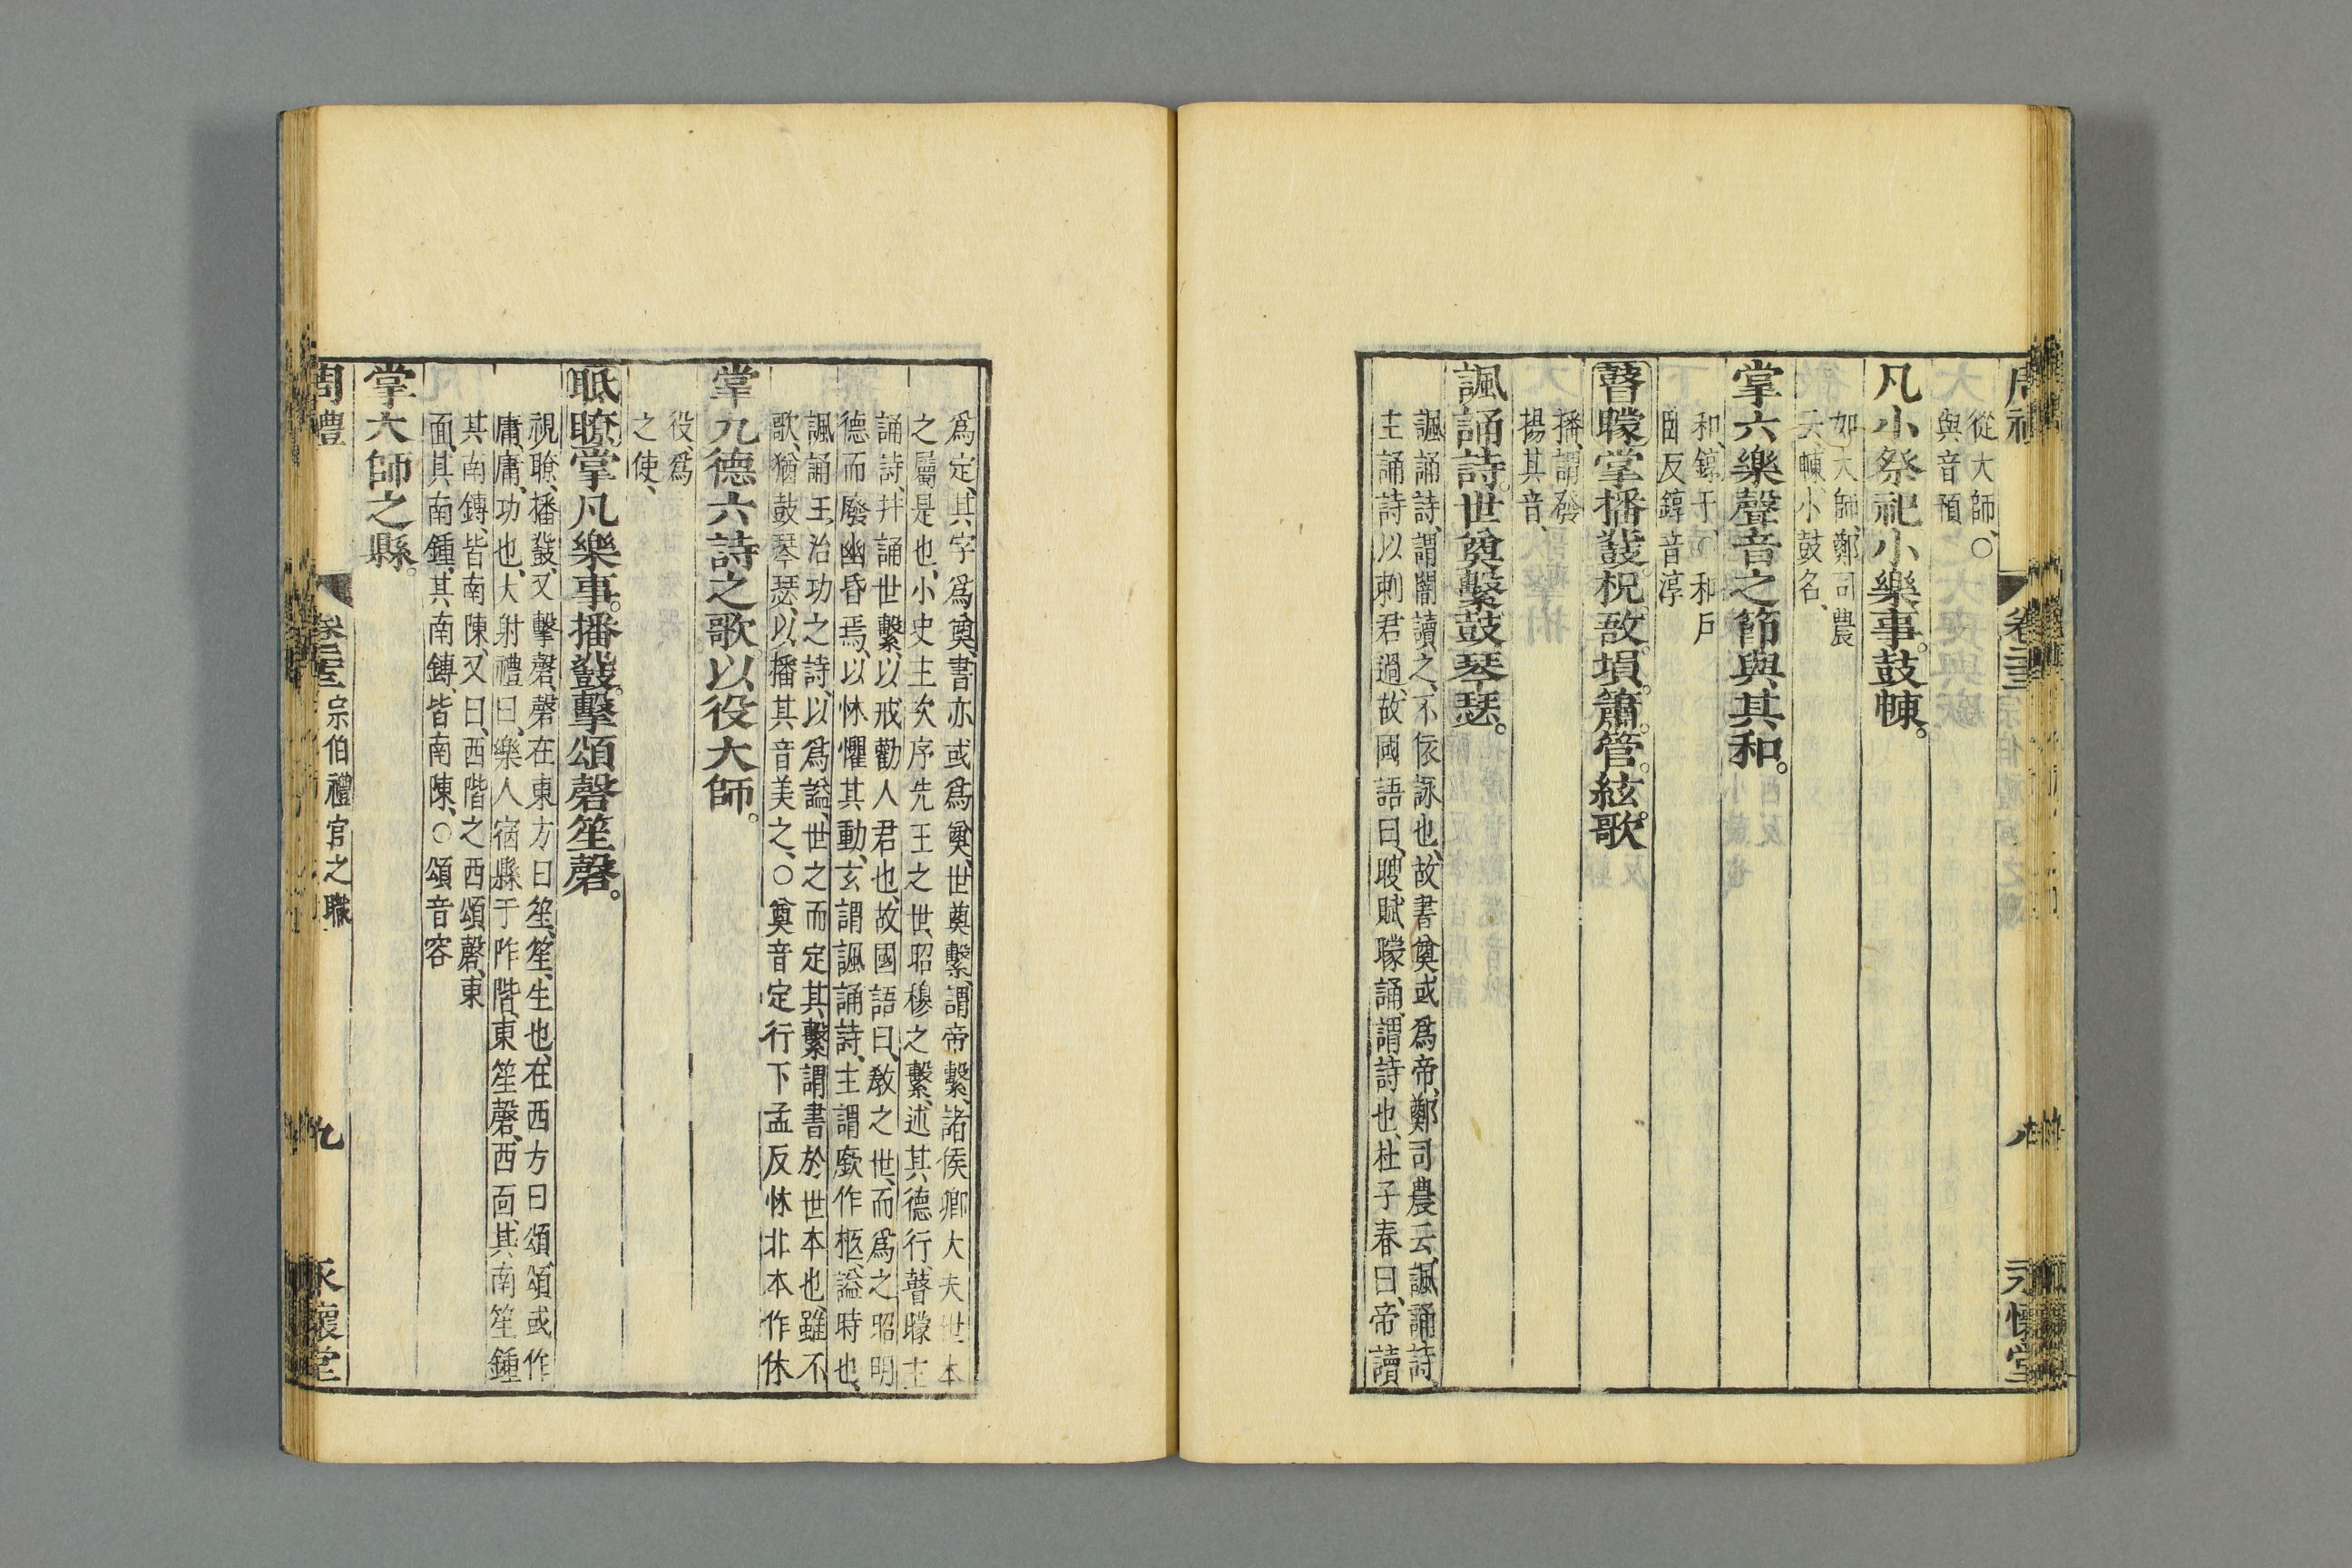 周禮 卷二十三 八 永懷堂
從大師、○
與音預
凡小祭祀小樂事。鼓朄。
如大師、鄭司農
云朄、小鼓名、
掌六樂聲音之節與其和。
和、錞于、○和戶
臥反錞音淳
瞽矇掌播鼗。柷。敔。塤。簫。管。絃。歌
播、謂發
揚其音、
諷誦詩。世奠繫鼓琴瑟。
諷誦詩、謂闇讀之、不依詠也、故書奠或爲帝、鄭司農云、諷誦詩、
主誦詩以刺君過、故國語曰、瞍賦矇誦、謂詩也、杜子春曰、帝讀
爲定、其字爲奠、書亦或爲奠、世奠繫、謂帝繫、諸侯卿大夫世本
之屬是也、小史主次序先王之世、昭穆之繫、述其德行、瞽矇主
誦詩、并誦世繫、以戒勸人君也、故國語曰、敎之世、而爲之昭明
德而廢幽昏焉、以怵懼其動、玄謂諷誦詩、主謂廞作柩、謚時也、
諷誦王治功之詩、以爲謚、世之而定其繫、謂書於世本也、雖不
歌、猶鼓琴瑟、以播其音美之、○奠音定行下孟反怵北本作休
掌九德六詩之歌。以役大師。
役、爲
之使、
眡瞭掌凡樂事。播鼗。擊頌磬笙磬。
視瞭、播鼗、又擊磬、磬在東方曰笙、笙、生也、在西方曰頌、頌或作
庸、庸、功也、大射禮曰、樂人宿縣于阼階、東笙磬、西面、其南笙鍾
其南鎛、皆南陳、又曰、西階之西頌磬、東
面、其南鍾、其南鎛、皆南陳、○頌音容
掌大師之縣。
周禮 卷二十三 宗伯禮官之職 九 永懷堂